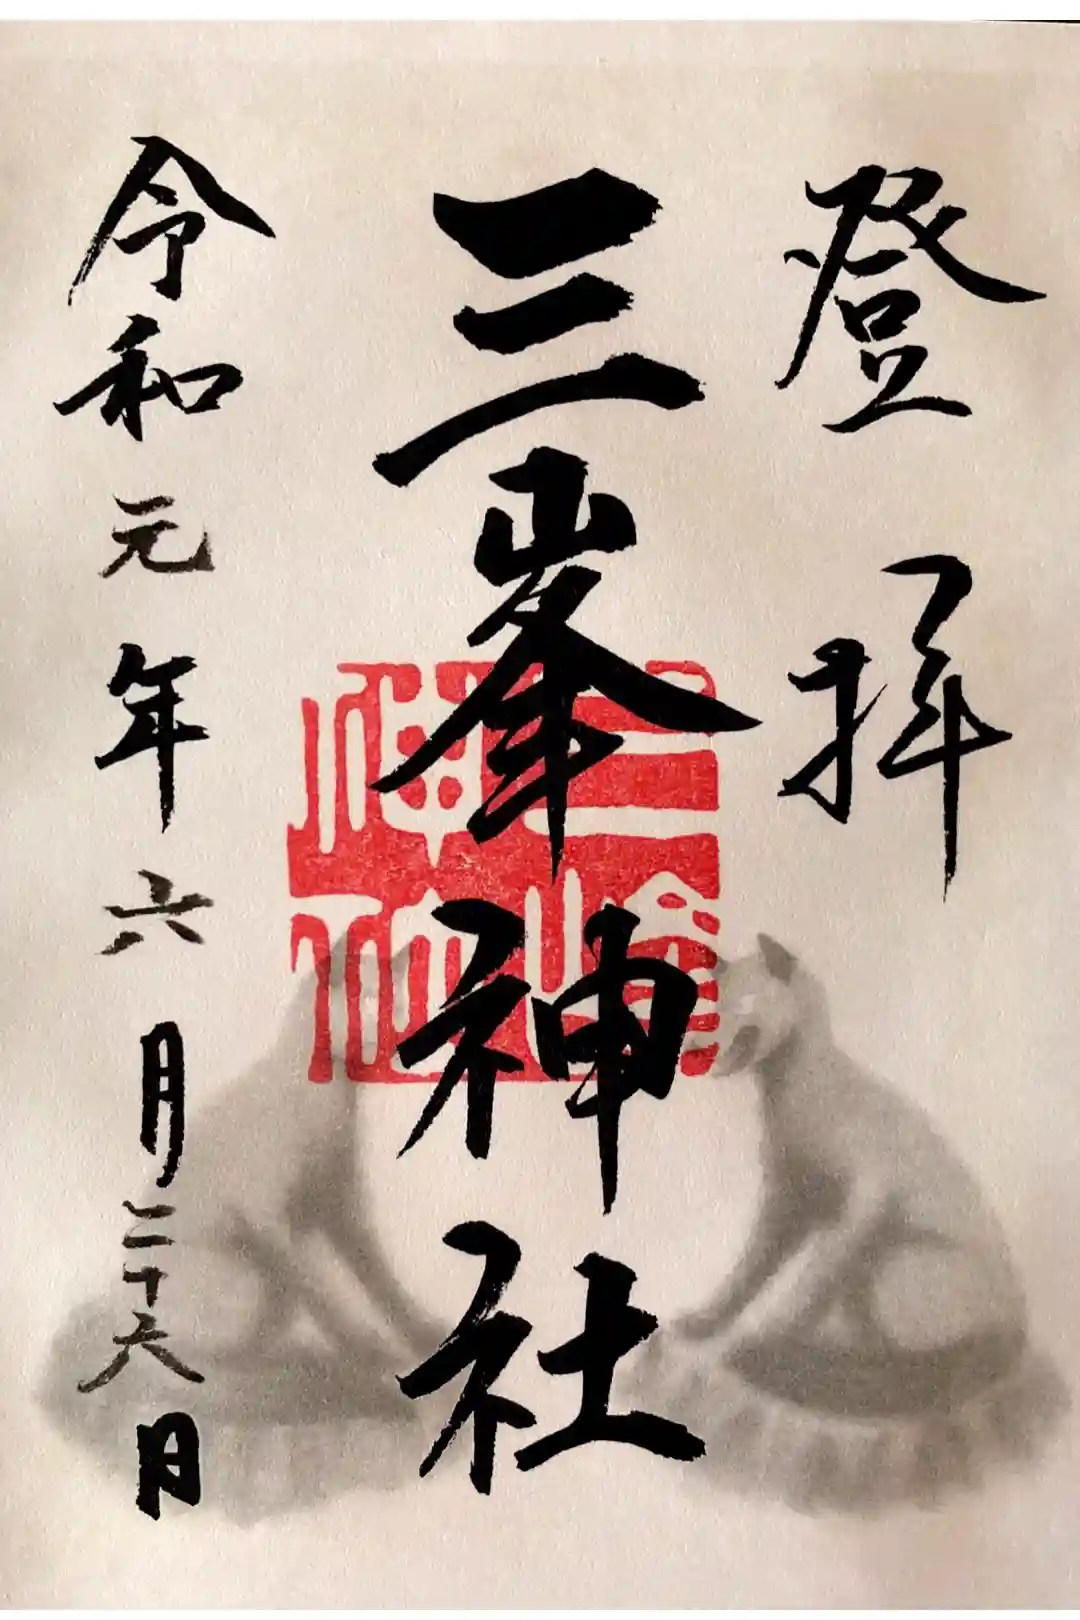 登拝
三峯神社
三峯神社
令和元年六月二十六日